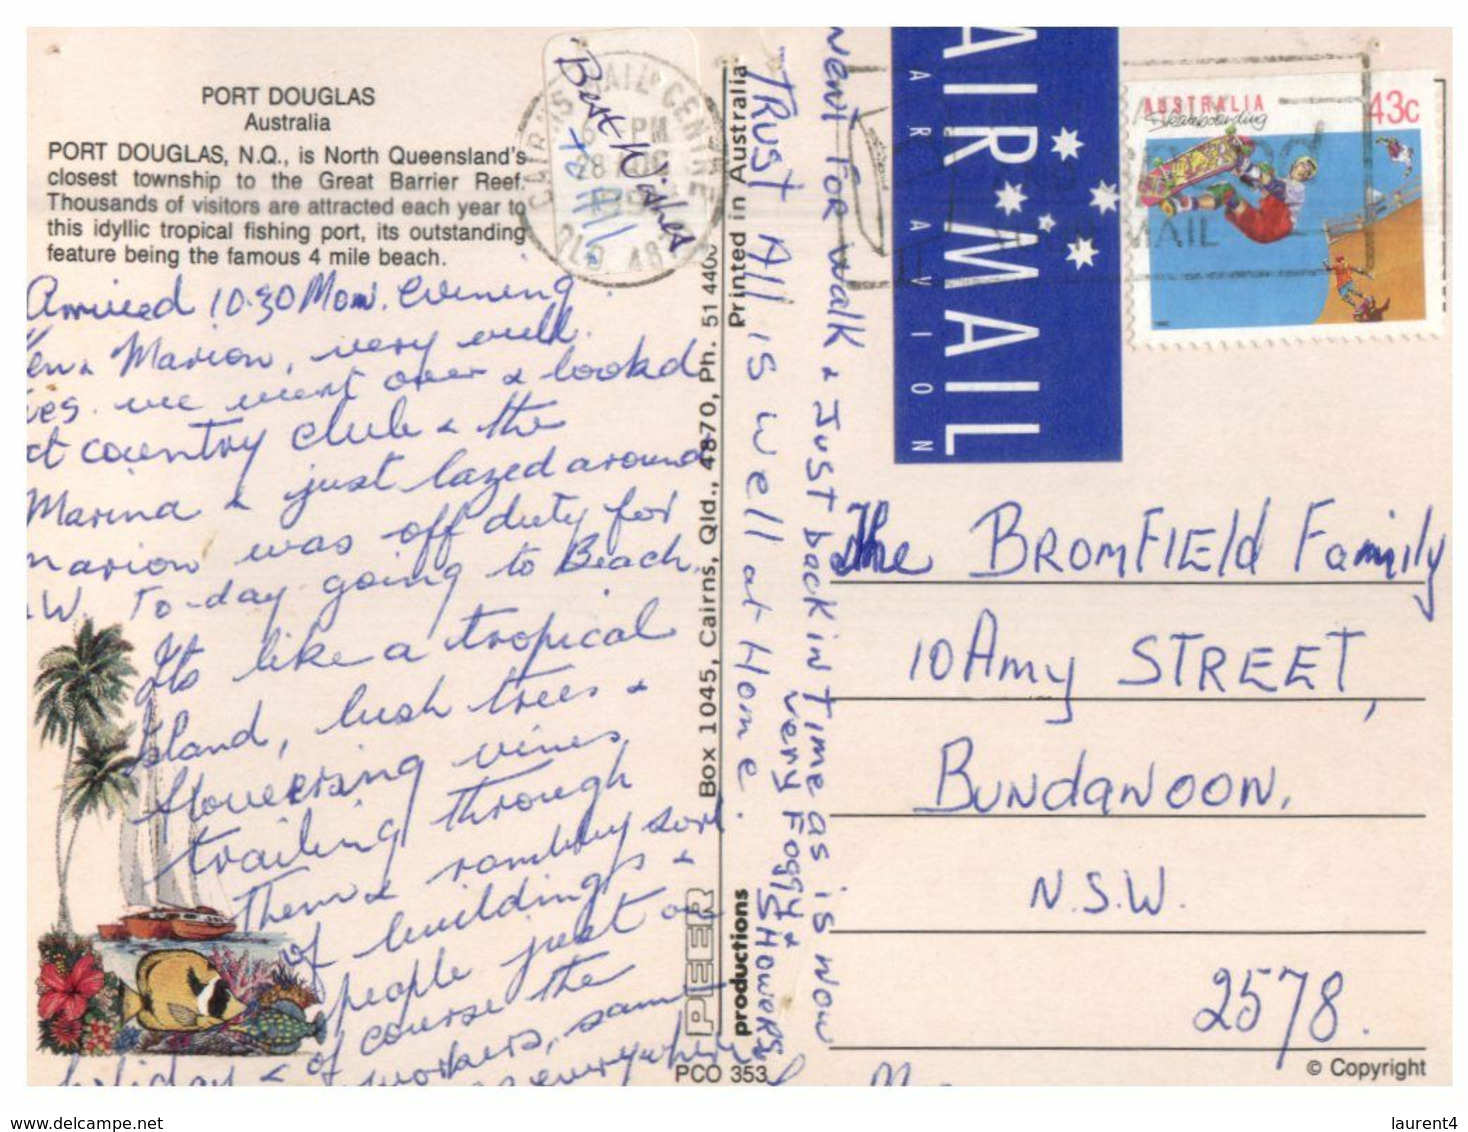 PORT DOUGLAS
Australia
PORT DOUGLAS, N.Q., is North Queensland's
closest township to the Great Barrier Reef.
Thousands of visitors are attracted each year to
this idyllic tropical fishing port, its outstanding
feature being the famous 4 mile beach.
Arrived 10.30 Mon. evening
Marion, very well.
we went over & lookd
at country club & the
Marina & just lazed around
marion was off duty for
To-day going to Beach.
Its like a tropical
Island, lush trees &
flowering vines
trailing through
them & rambling sort
of buildings &
people just on
of course the
holiday &
workers, same
everywhere
Best Wishes
to All
CAIRNS MAIL CENTRE
6 PM
28
QLD 4870
Printed in Australia
Box 1045, Cairns, Qld., 4870, Ph. 51 440
PEER
productions
PCO 353
TRUST All is well at Home.
very Foggy & SHowers
went For walk & Just back in Time as is now
AIR MAIL
PAR AVION
AUSTRALIA
Skateboarding
43c
MAIL
The BROMFIEld Family
10 Amy STREET,
BundaNOON,
N.S.W.
2578.
© Copyright
www.delcampe.net
laurent4